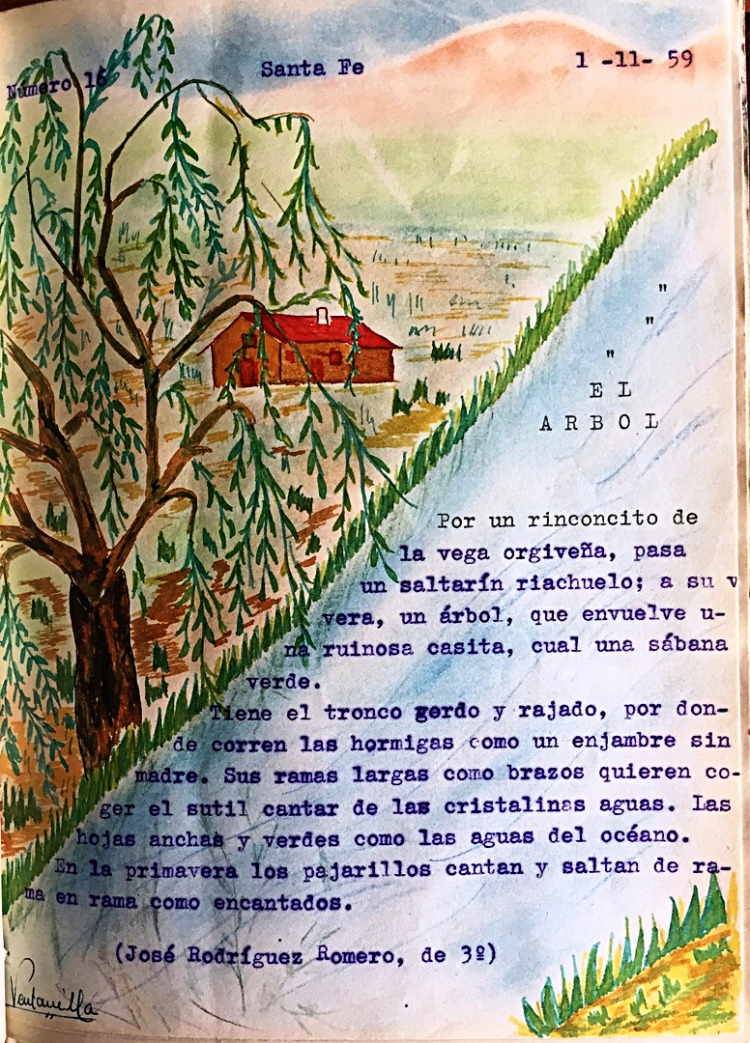 Número 16 Santa Fe 1 -11- 59
"
"
"
E L
A R B O L
Por un rinconcito de
la vega orgiveña, pasa
un saltarín riachuelo; a su v
vera, un árbol, que envuelve u-
na ruinosa casita, cual una sábana
verde.
Tiene el tronco gordo y rajado, por don-
de corren las hormigas como un enjambre sin
madre. Sus ramas largas como brazos quieren co-
ger el sutil cantar de las cristalinas aguas. Las
hojas anchas y verdes como las aguas del océano.
En la primavera los pajarillos cantan y saltan de ra-
ma en rama como encantados.
(José Rodríguez Romero, de 3º)
Ventanilla